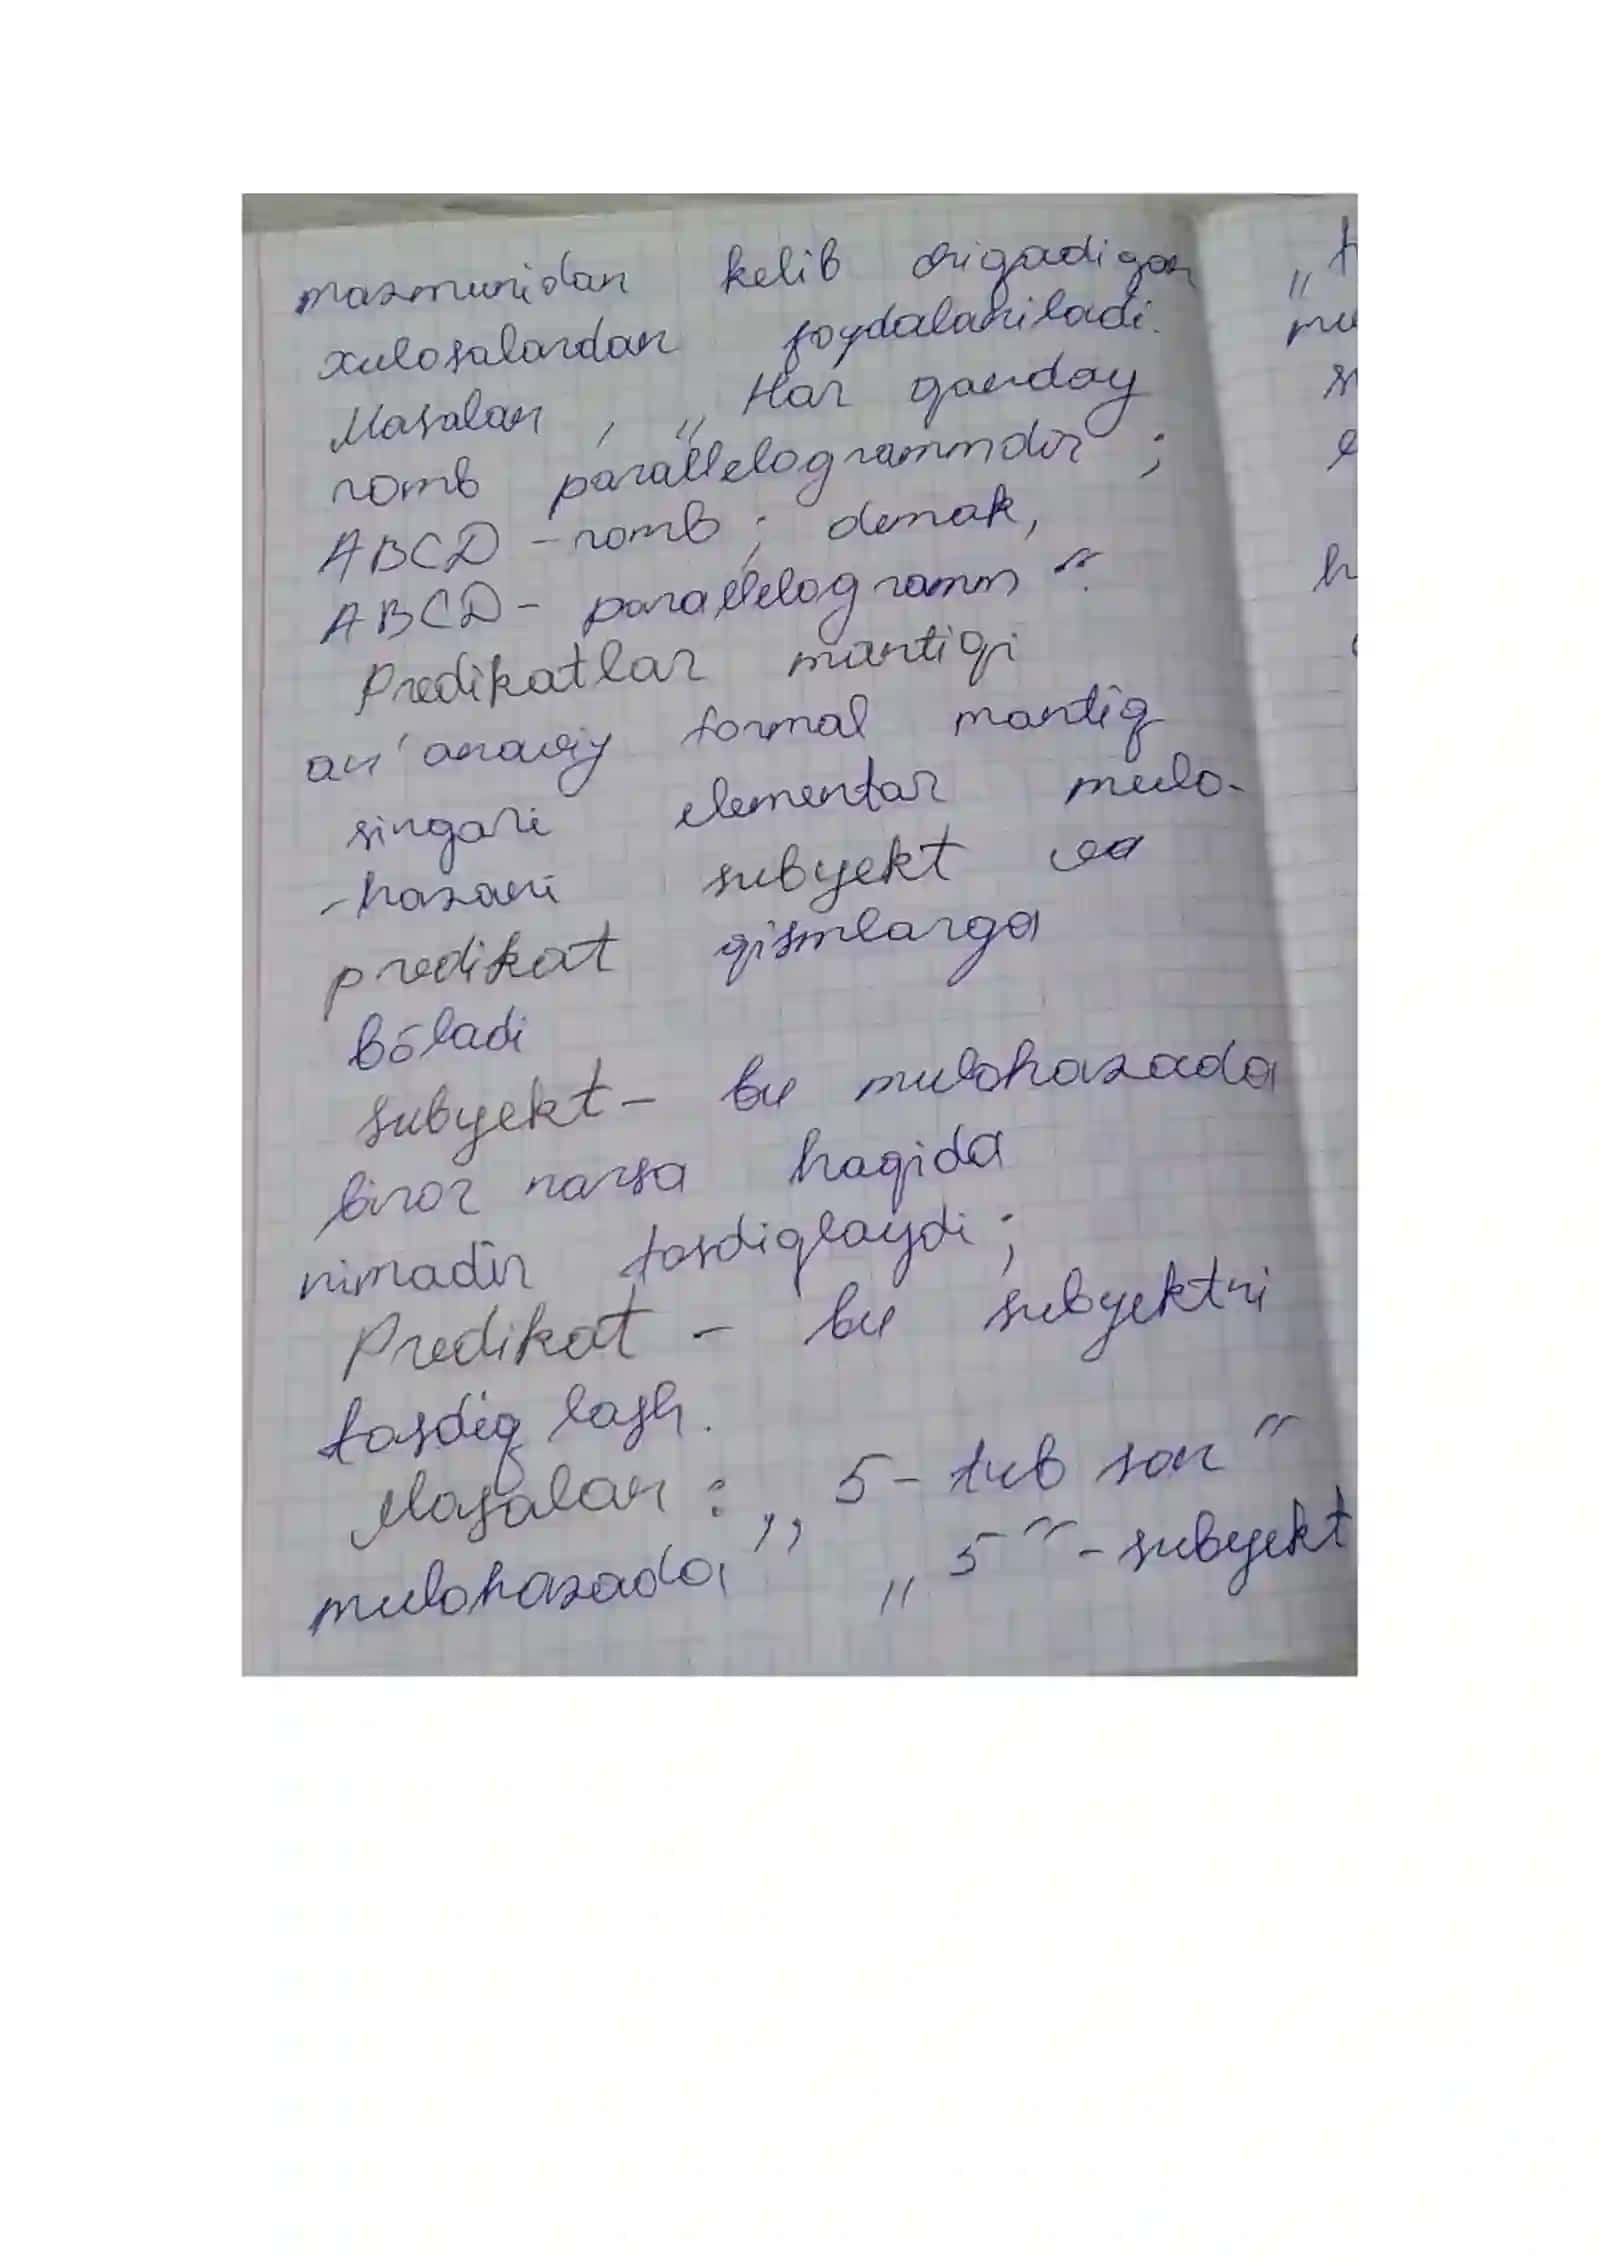 mazmunidan kelib chiqadigan
xulosalardan foydalaniladi.
Masalan, „Har qanday
romb parallelogrammdir;
ABCD - romb; demak,
ABCD - parallelogramm“.
Predikatlar mantiqi
an'anaviy formal mantiq
singari elementar mulo-
-hazani subyekt va
predikat qismlarga
bōladi
subyekt - bu mulohazada
biror narsa haqida
nimadir tasdiqlaydi;
Predikat - bu subyektni
tasdiqlash.
Masalan: „5 - tub son“
mulohazada „5“ - subyekt